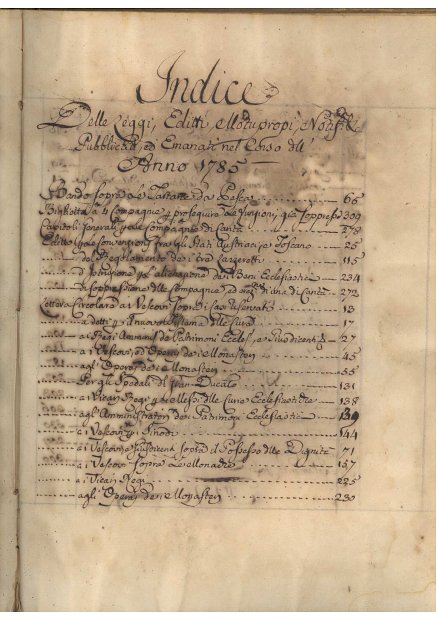 Indice
Delle Leggi, Editti, Motupropi, Notif.
Pubblicati, ed Emanati nel Corso dell'
Anno 1785
Bando sopra le Tartane da Pesca 66
a 4 Compagnie proseguire le funzioni già soppresse 309
Capitoli Generali per le Compagnie di Carità 278
Editto per le Convenzioni fra gli Stati Austriaci, e Toscano 25
del Regolamento dei tre Lazzeretti 115
ed Istruzione per alienazione dei Beni Ecclesiastici 234
di Soppressione delle Compagnie, ed di una di Carità 272
Lettera Circolare ai Vescovi sopra i Casi 13
a detti per Esame della Cura 17
ai Regi Amministratori de Patrimoni Eccles., e Giusdicenti 27
ai Vescovi, ed Operai dei Monasteri 45
agli Operai dei Monasteri 55
Per gli Spedali di Gran Ducato 131
ai Vicari Regi per delle Curie Ecclesiastiche 138
agli Amministratori dei Patrimoni Ecclesiastici 139
ai Vescovi per i Sinodi 144
ai Vescovi, e Giusdicenti sopra il Possesso delle Dignità 71
ai Vescovi sopra le Monache 157
ai Vicari Regi 225
agli Operai dei Monasteri 230